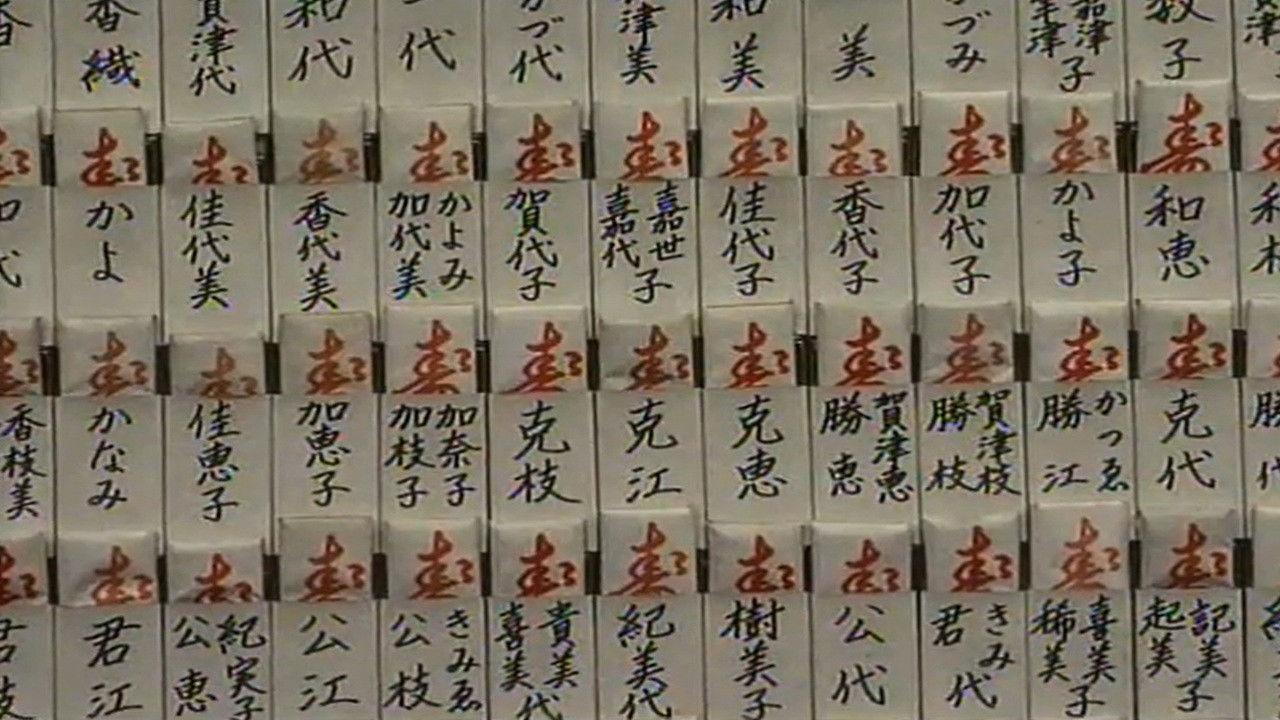 香織
賀津代
和代
代
かづ代
津美
和美
美
かづみ
津 嘉津子
教子
寿
かよ
佳代美
香代美
加代美 かよみ
賀代子
嘉代 嘉世子
佳代子
香代子
加代子
かよ子
和恵
寿
香枝美
かなみ
佳恵子
加恵子
加枝子 加奈子
克枝
克江
克恵
勝恵 賀津恵
勝枝 賀津枝
勝江 かつゑ
克代
寿
君枝
君江
公恵 紀実子
公江
公枝 きみゑ
喜美 貴美代
紀美代
樹美子
公代
君代 きみ
稀美 喜美子
起美 記美子